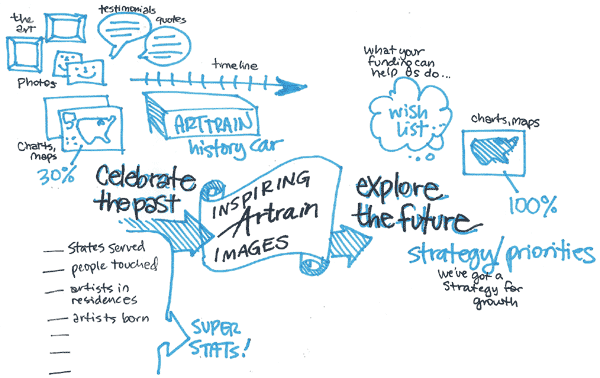 the
art
testimonials
quotes
photos
timeline
ARTTRAIN
history car
charts,
maps
30%
Celebrate
the past
INSPIRING
Artrain
IMAGES
what your
funding can
help us do...
wish
list
charts, maps
100%
explore
the future
strategy/priorities
we've got a
strategy for
growth
states served
people touched
artists in
residences
artists born
SUPER
STATS!